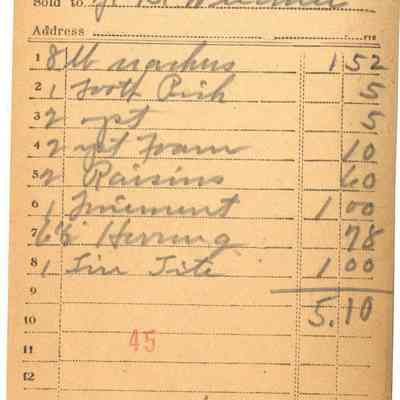 Sold to
Address
1 8 lb 1 52
2 1 Tooth Pick 5
3 2 5
4 2 yst Foam 10
5 2 Raisins 60
6 1 Liniment 1 00
7 Herring 78
8 1 Tire Tite 1 00
9
10 5.10
11 45
12